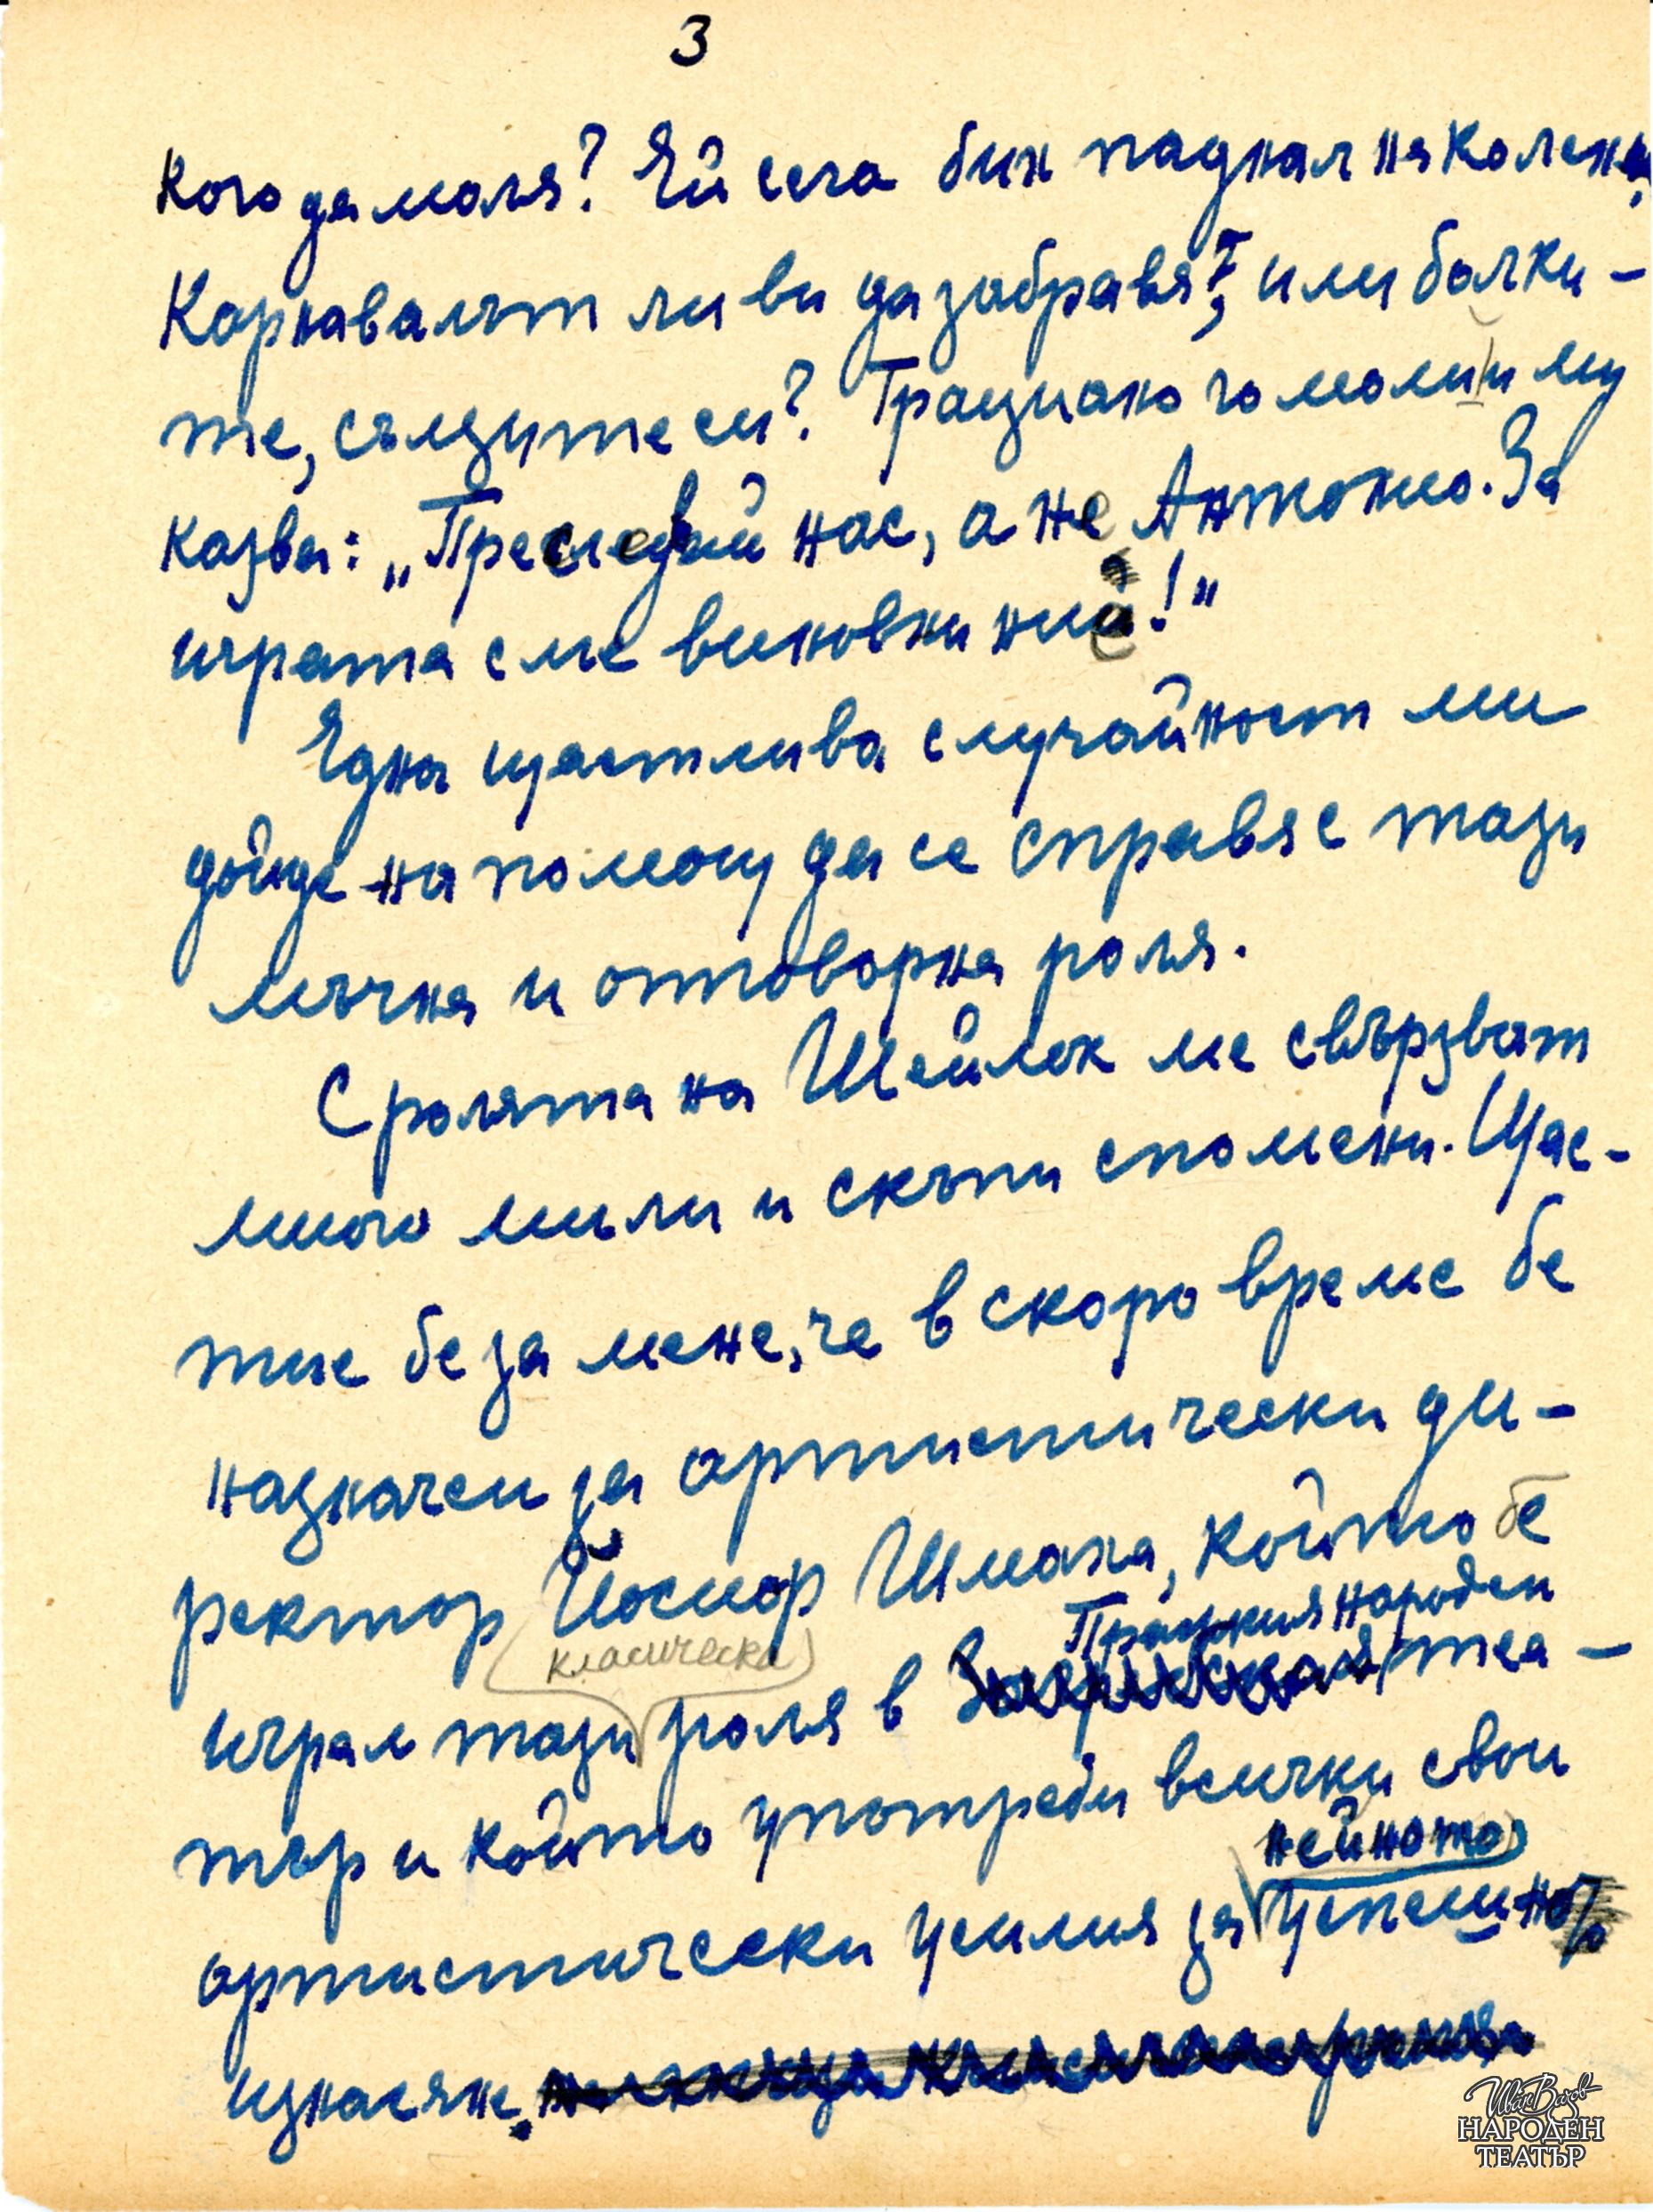 3
кого да моля? Ей сега бих паднал на колене,
Карнавалът ли ви да забравя, или болки-
те, сълзите си? Грациано го моли и му
казва: „Преследвай нас, а не Антонио. За
играта сме виновни ний!"
Една щастлива случайност ми
дойде на помощ да се справя с тази
мъчна и отговорна роля.
С ролята на Шейлок ме свързват
много мили и скъпи спомени. Щас-
тие бе за мене, че в скоро време бе
назначен за артистически ди-
ректор Йосиф Шмаха, който бе
Пражкия народен
класическа
играл тази роля в теа-
тър и който употреби всички свои
нейното
артистически усилия за успешно
изнасяне.
Иван Вазов
НАРОДЕН
ТЕАТЪР